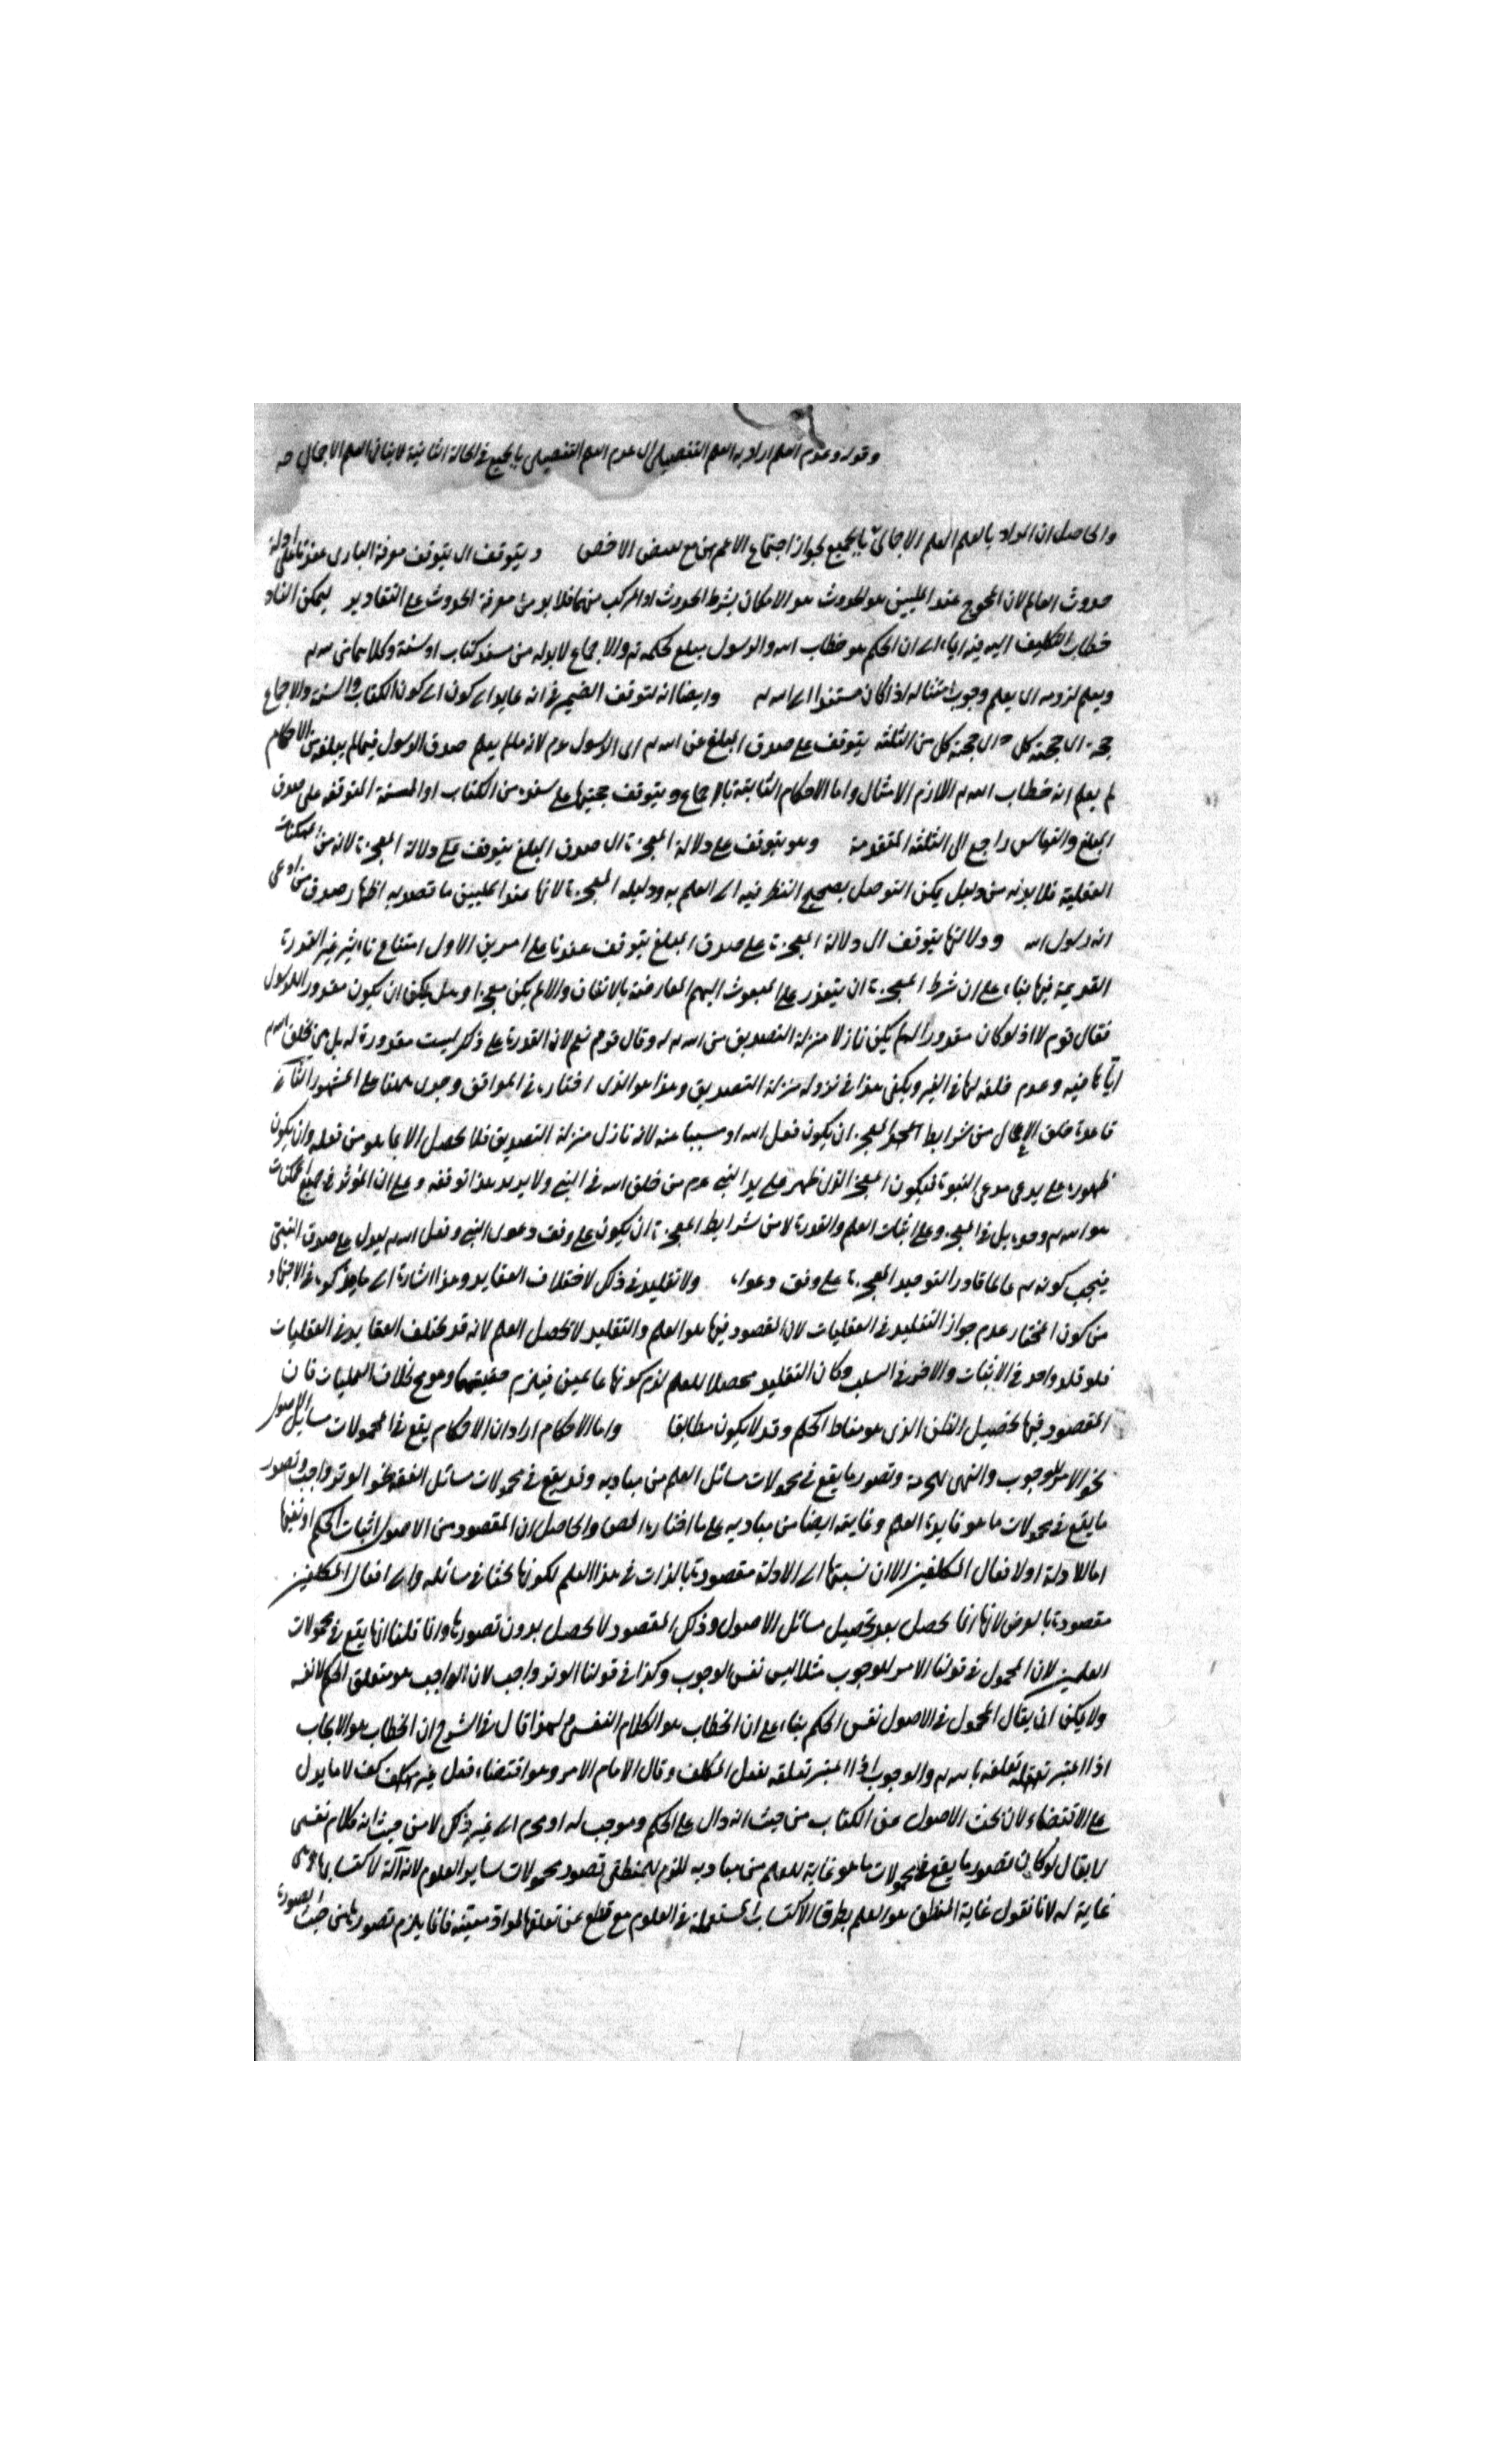 وقوله وعدم العلم اراد به العلم التفصيلى اى عدم العلم التفصيلى بالجميع فى الحالة الثانية لا ينافى العلم الاجمالى صه
والحاصل ان المراد بالعلم العلم الاجمالى بالجميع لجواز اجتماع الاعم مع بعض الاخص ويتوقف اى يتوقف معرفة البارى عندنا على ادلة
حدوث العالم لان المحوج عند المليين هو الحدوث هو الامكان بشرط الحدوث او المركب منهما فلا بد من معرفة الحدوث على التقادير ليمكن اسناد
خطاب التكليف اليه فيه ايماء الى ان الحكم هو خطاب الله والرسول مبلغ لحكمه تع والاجماع لا بد له من سند كتاب او سنة وكلاهما من الله
ويعلم لزومه اى يعلم وجوب امتثاله اذا كان مستندا الى الله وايضا انه لتوقف الضمير فى انه عايد الى كون الكتاب والسنة والاجماع
حجة اى حجية كل من الثلثة يتوقف على صدق المبلغ عن الله الى الرسول عم لانه ما لم يعلم صدق الرسول فيما لم يبلغه من الاحكام
لم يعلم انه خطاب الله اللازم الامتثال واما الاحكام الثابتة بالاجماع ويتوقف حجيتها على سنده من الكتاب او السنة المتوقفة على صدق
المبلغ والقياس راجع الى الثلثة المتقدمة وهو يتوقف على دلالة المعجزة اى صدق المبلغ يتوقف على دلالة المعجزة لانه من الممكنات
العقلية فلا بد له من دليل يمكن التوصل بصحيح النظر فيه الى العلم به ودليله المعجزة لانها عند المليين ما قصد به اظهار صدق من ادعى
انه رسول الله ودلالتها يتوقف اى دلالة المعجزة على صدق المبلغ يتوقف عندنا على امرين الاول امتناع تاثير غير القدرة
القديمة فيها بناء على ان شرط المعجزة ان يتعذر على المبعوث اليهم المعارضة بالاتفاق والا لم يكن معجزا وهل يمكن ان يكون مقدورا للرسول
فقال قوم لا اذ لو كان مقدورا له لم يكن نازلا منزلة التصديق من الله له وقال قوم نعم لان القدرة على ذلك ليست مقدورة له بل هى بخلق الله
اياها فيه وعدم خلقه لها فى الغير ويكفى هذا فى نزوله منزلة التصديق وهذا هو الذى اختاره فى المواقف وجرى ههنا على المشهور الثانى
قاعدة خلق الاعمال من شرايط المعجز ان يكون فعل الله او سببا منه لانه نازل منزلة التصديق فلا يحصل الا بما هو من فعله وان يكون
ظهوره على يدى مدعى النبوة فيكون المعجز الذى ظهر على يد النبى عم من خلق الله فى النبى ولا يريد بهذا توقفه وعلى ان المؤثر فى جميع الممكنات
هو الله وحده بل فى المعجز وعلى اثبات العلم والقدرة لان من شرايط المعجزة ان يكون على وفق دعوى النبى وفعل الله يدل على صدق النبى
فيجب كونه عالما قادرا لتوجيه المعجزة على وفق دعواه ولا تقليد فى ذلك لاختلاف العقايد وهذا اشارة الى ما يذكره فى الاجتهاد
من كون المختار عدم جواز التقليد فى العقليات لان المقصود فيها هو العلم والتقليد لا يحصل العلم لانه قد يختلف العقايد فى العقليات
فلو قلد واحد فى الاثبات والاخر فى السلب وكان التقليد محصلا للعلم لزم كونهما عالمين فيلزم حقيتهما وهو مح بخلاف العمليات فان
المقصود فيها تحصيل الظن الذى هو مناط الحكم وقد لا يكون مطابقا واما الاحكام اراد ان الاحكام يقع فى محمولات مسايل الاصول
نحو الامر للوجوب والنهى للحرمة وتصور ما يقع فى محمولات مسائل العلم من مباديه وقد يقع فى محمولات مسائل الفقه نحو الوتر واجب وتصور
ما يقع فى محمولات ما هو فايدة العلم وغايته ايضا من مباديه على ما اختاره المص والحاصل ان المقصود من الاصول اثبات الحكم او نفيها
اما للادلة او لافعال المكلفين الا ان نسبتها الى الادلة مقصودة بالذات فى هذا العلم لكونها بحثا فى مسائله والى افعال المكلفين
مقصودة بالعرض لانها انما يحصل بعد تحصيل مسائل الاصول وذلك المقصود لا يحصل بدون تصورها وانما قلنا انها يقع فى محمولات
العلمين لان المحمول فى قولنا الامر للوجوب مثلا ليس نفس الوجوب وكذا فى قولنا الوتر واجب لان الواجب هو متعلق الحكم لا نفسه
ولا يمكن ان يقال المحمول فى الاصول نفس الحكم بناء على ان الخطاب هو الكلام النفسى لهذا قال فى الشرح ان الخطاب هو الايجاب
اذا اعتبر تعلقه بالله والوجوب اذا اعتبر تعلقه بفعل المكلف وقال الامام الامر وهو اقتضاء فعل غير كف لا ما يدل
على الاقتضاء لان بحث الاصول عن الكتاب من حيث انه دال على الحكم وموجب له او محرم الى غير ذلك لا من حيث انه كلام نفسى
لا يقال لو كان تصور ما يقع فى محمولات ما هو غاية للعلم من مباديه للزم للمنطقى تصور محمولات ساير العلوم لانه آلة لاكتسابها وهى
غاية له لانا نقول غاية المنطق هو العلم بطرق الاكتساب المستعملة فى العلوم مع قطع عن تعلقها لمواد معينة فانما يلزم تصورها من حيث الصورة